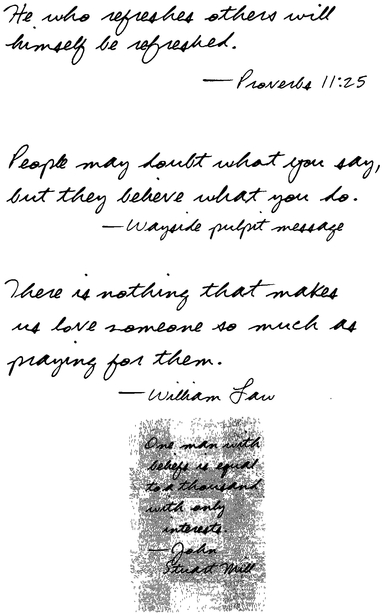 He who refreshes others will
himself be refreshed.
— Proverbs 11:25
People may doubt what you say,
but they believe what you do.
— Wayside pulpit message
There is nothing that makes
us love someone so much as
praying for them.
— William Law
One man with
beliefs is equal
to a thousand
with only
interests.
— John
Stuart Mill